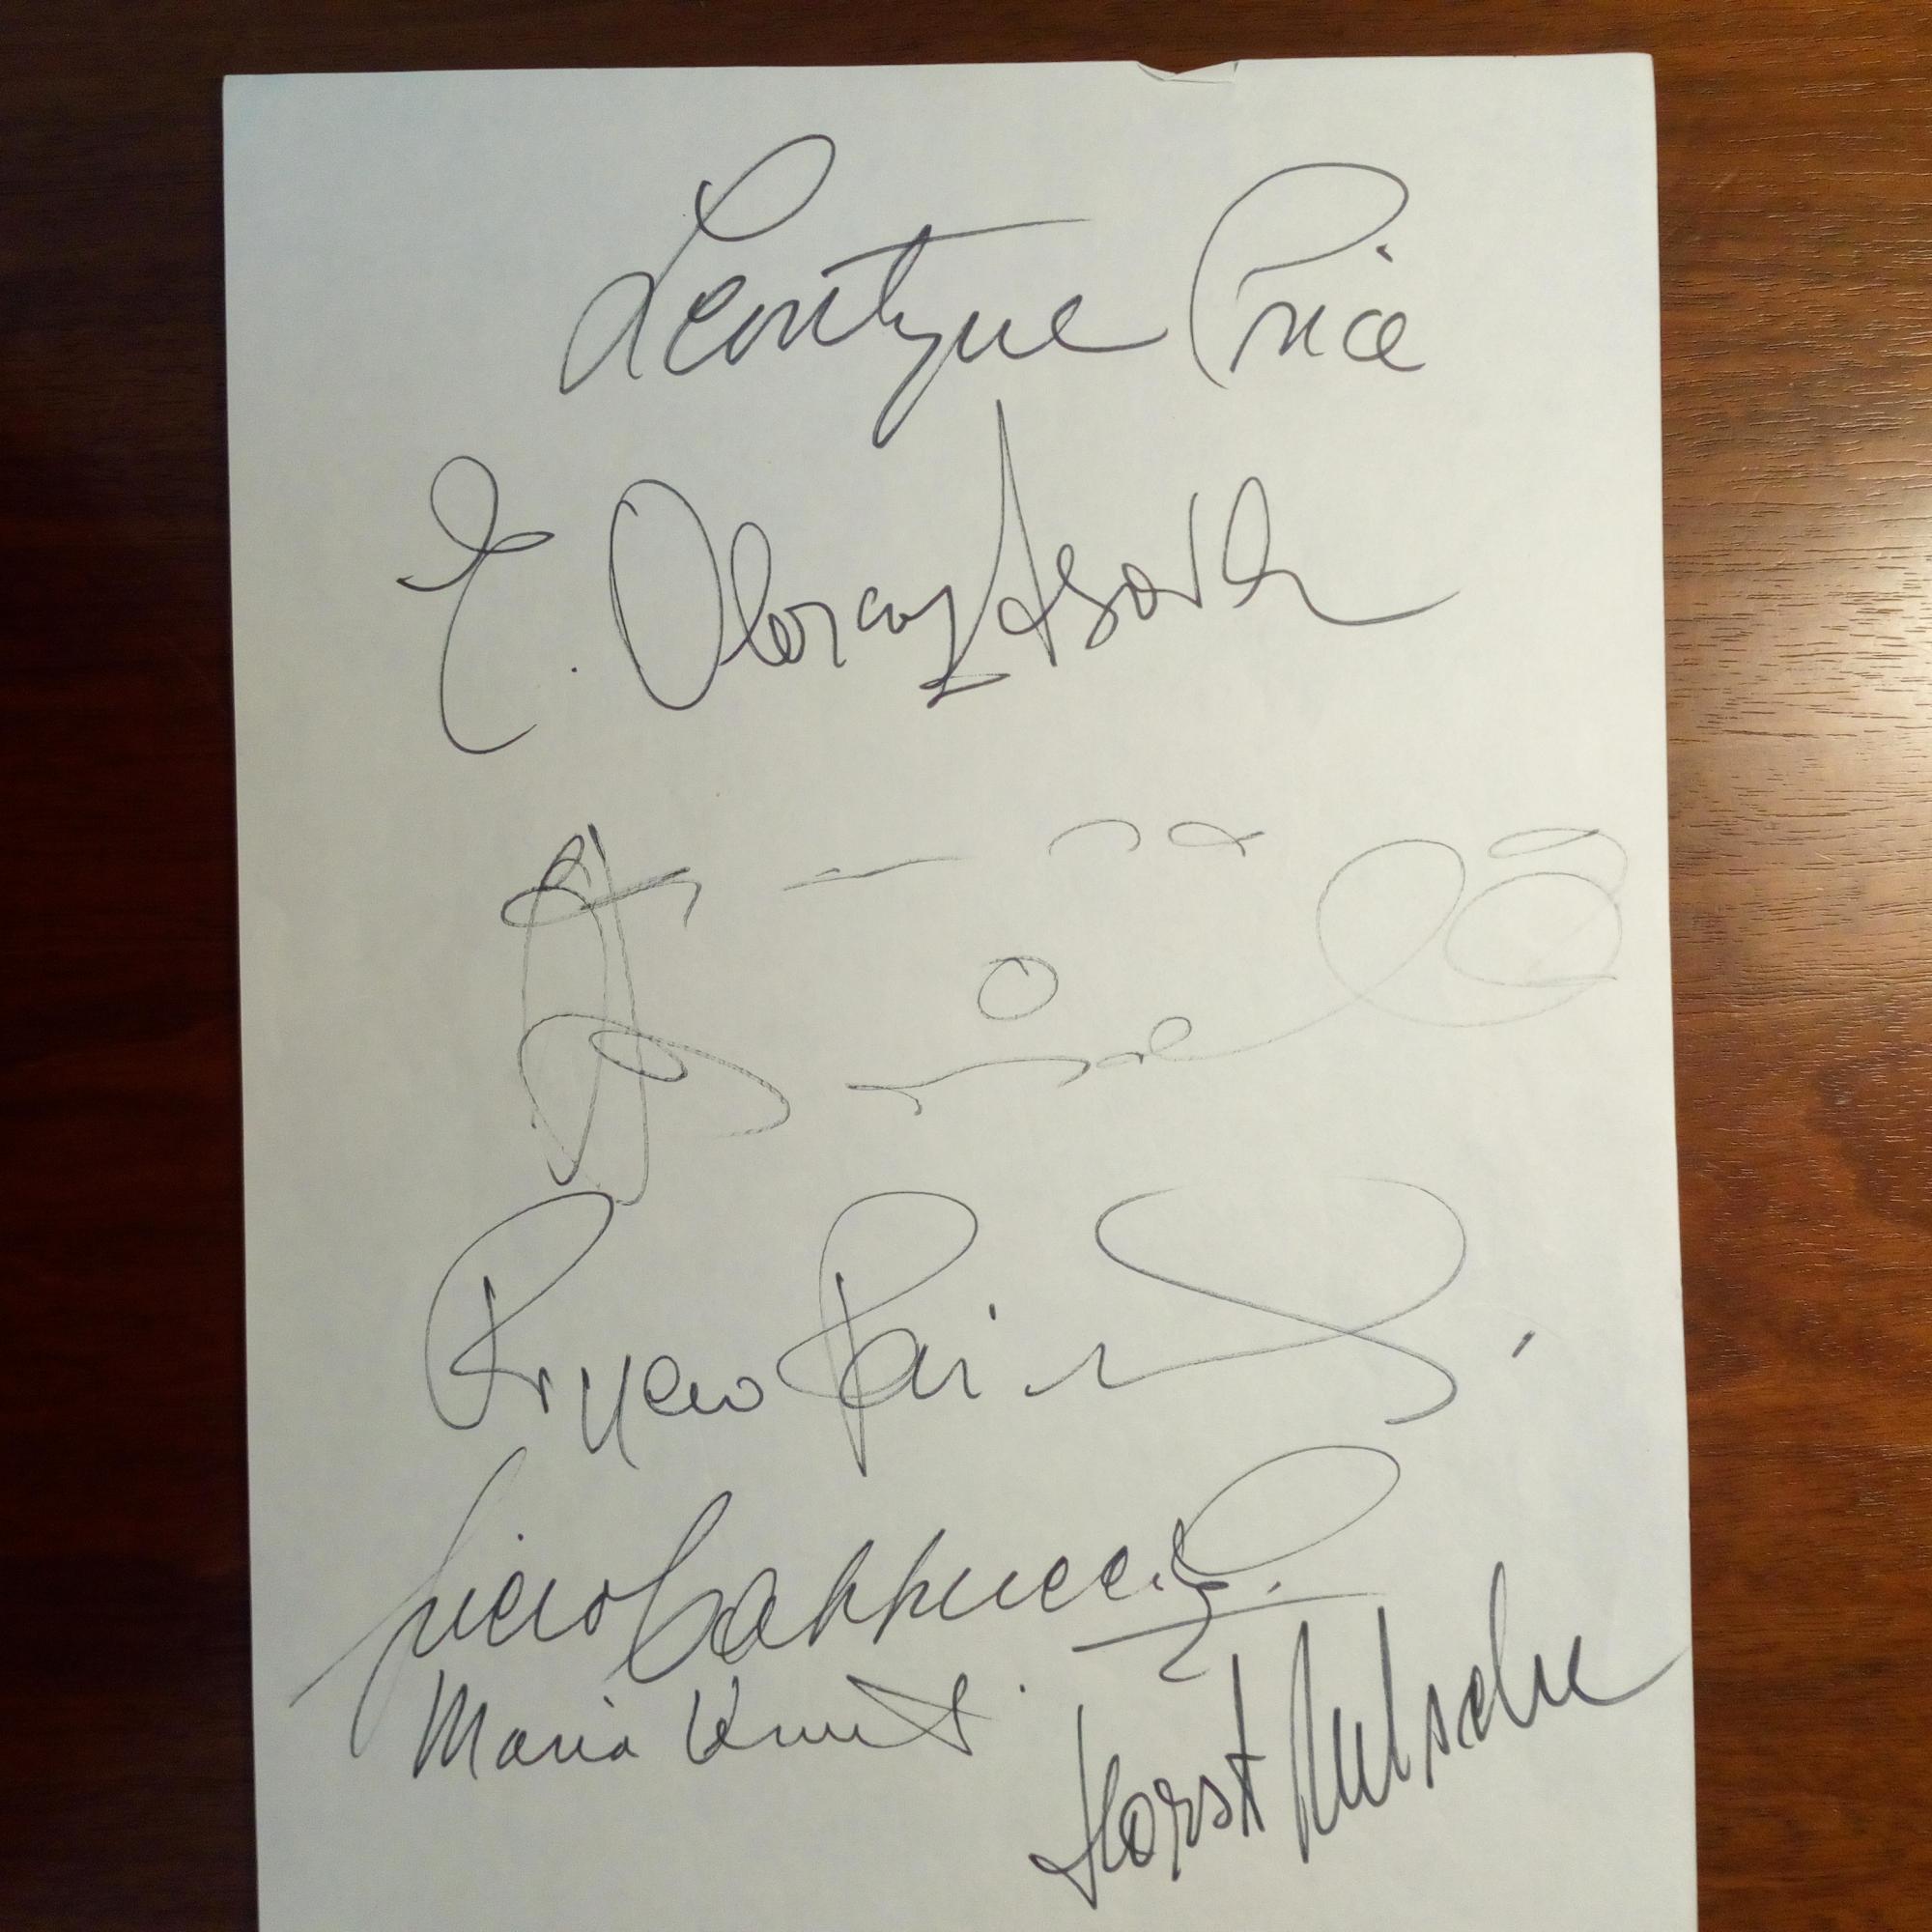 Leontyne Price
E. Obraztsova
Ruggero Raimondi
Piero Cappuccilli
Maria
Horst Nitsche